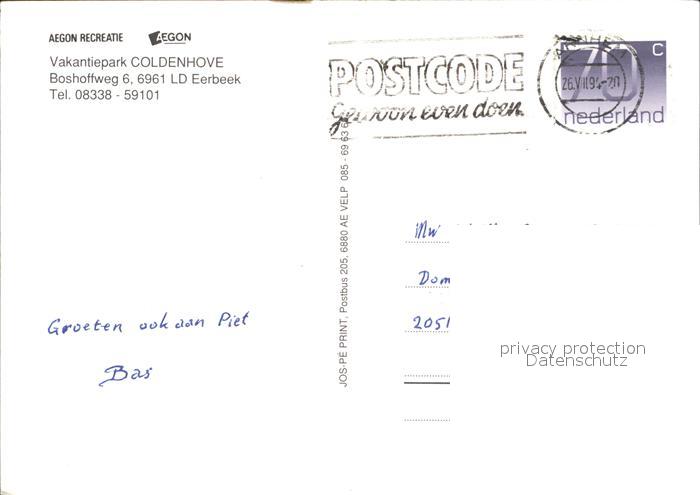 AEGON RECREATIE AEGON
Vakantiepark COLDENHOVE
Boshoffweg 6, 6961 LD Eerbeek
Tel. 08338 - 59101
POSTCODE
gewoon even doen.
26.VII.94-20
70 C
nederland
JOS-PÉ PRINT, Postbus 205, 6880 AE VELP 085 - 69 63 6
Mw
Dom
2051
Groeten ook aan Piet
Bas
privacy protection
Datenschutz